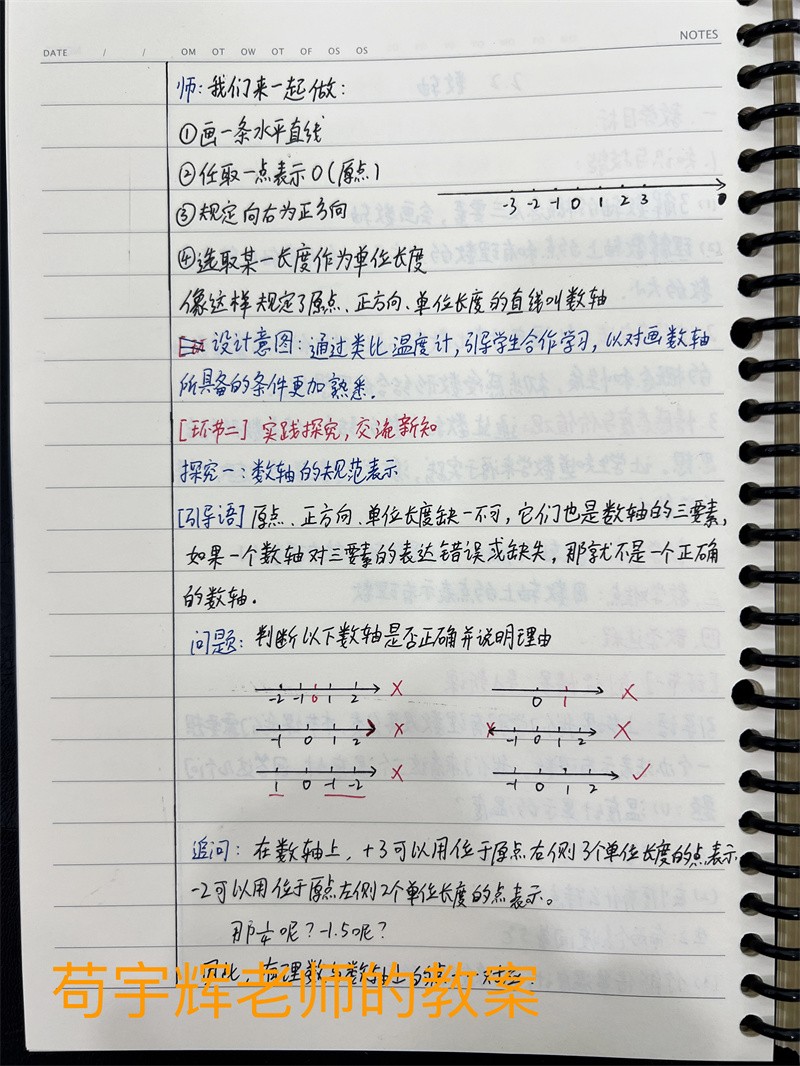 NOTES
DATE / / OM OT OW OT OF OS OS
师:我们来一起做:
①画一条水平直线
②任取一点表示0(原点)
-3 -2 -1 0 1 2 3
③规定向右为正方向
④选取某一长度作为单位长度
像这样规定了原点、正方向、单位长度的直线叫数轴
设计意图:通过类比温度计,引导学生合作学习,以对画数轴
所具备的条件更加熟悉.
[环节二] 实践探究,交流新知
探究一:数轴的规范表示
[引导语]原点、正方向、单位长度缺一不可,它们也是数轴的三要素,
如果一个数轴对三要素的表达错误或缺失,那就不是一个正确
的数轴.
问题:判断以下数轴是否正确并说明理由
-2 -1 0 1 2 × 0 1 ×
-1 0 1 2 × -1 0 1 2 ×
1 0 -1 -2 × -1 0 1 2 ✓
追问:在数轴上,+3可以用位于原点右侧3个单位长度的点表示
-2可以用位于原点左侧2个单位长度的点表示。
那¼呢?-1.5呢?
因此,有理数与数轴上的点一一对应.
苟宇辉老师的教案